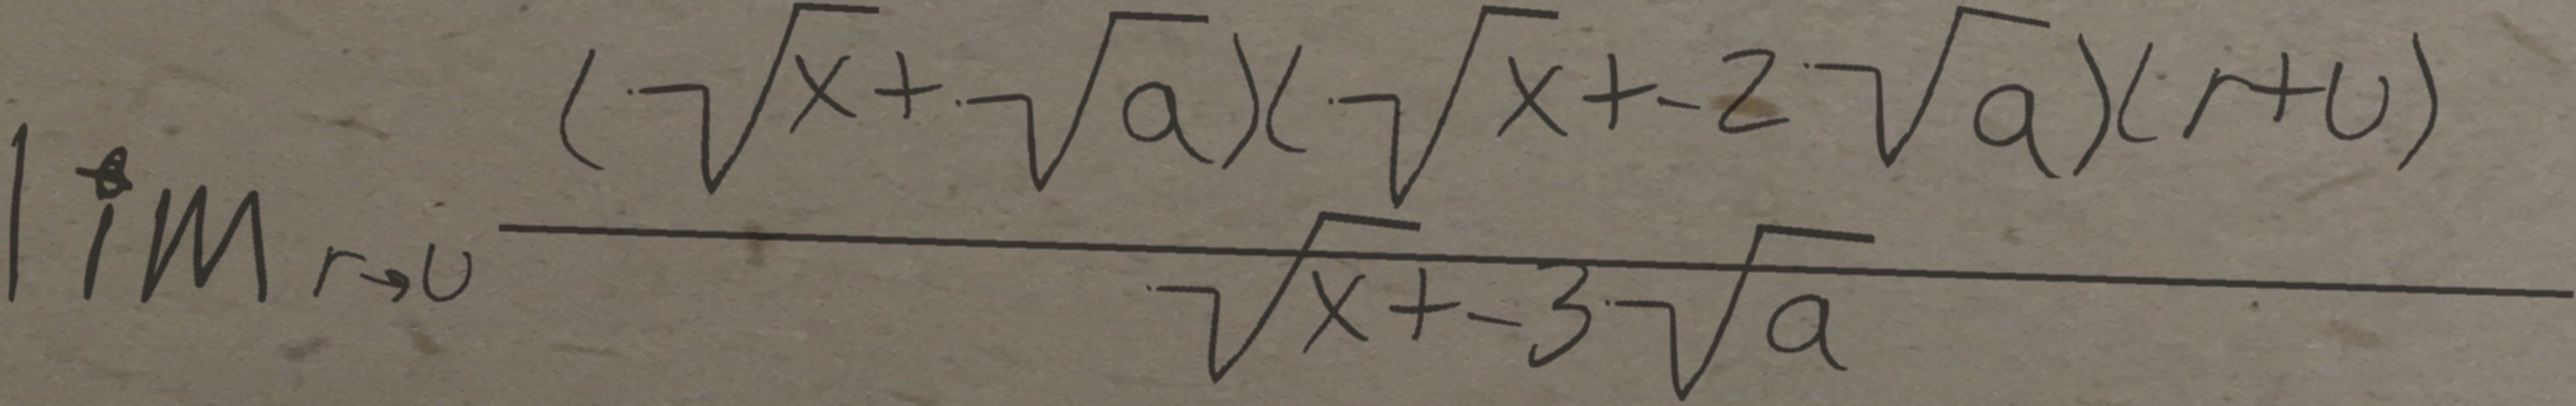 \lim_{r \to u} \frac{(\sqrt{x}+\sqrt{a})(\sqrt{x}+-2\sqrt{a})(r+u)}{\sqrt{x}+-3\sqrt{a}}